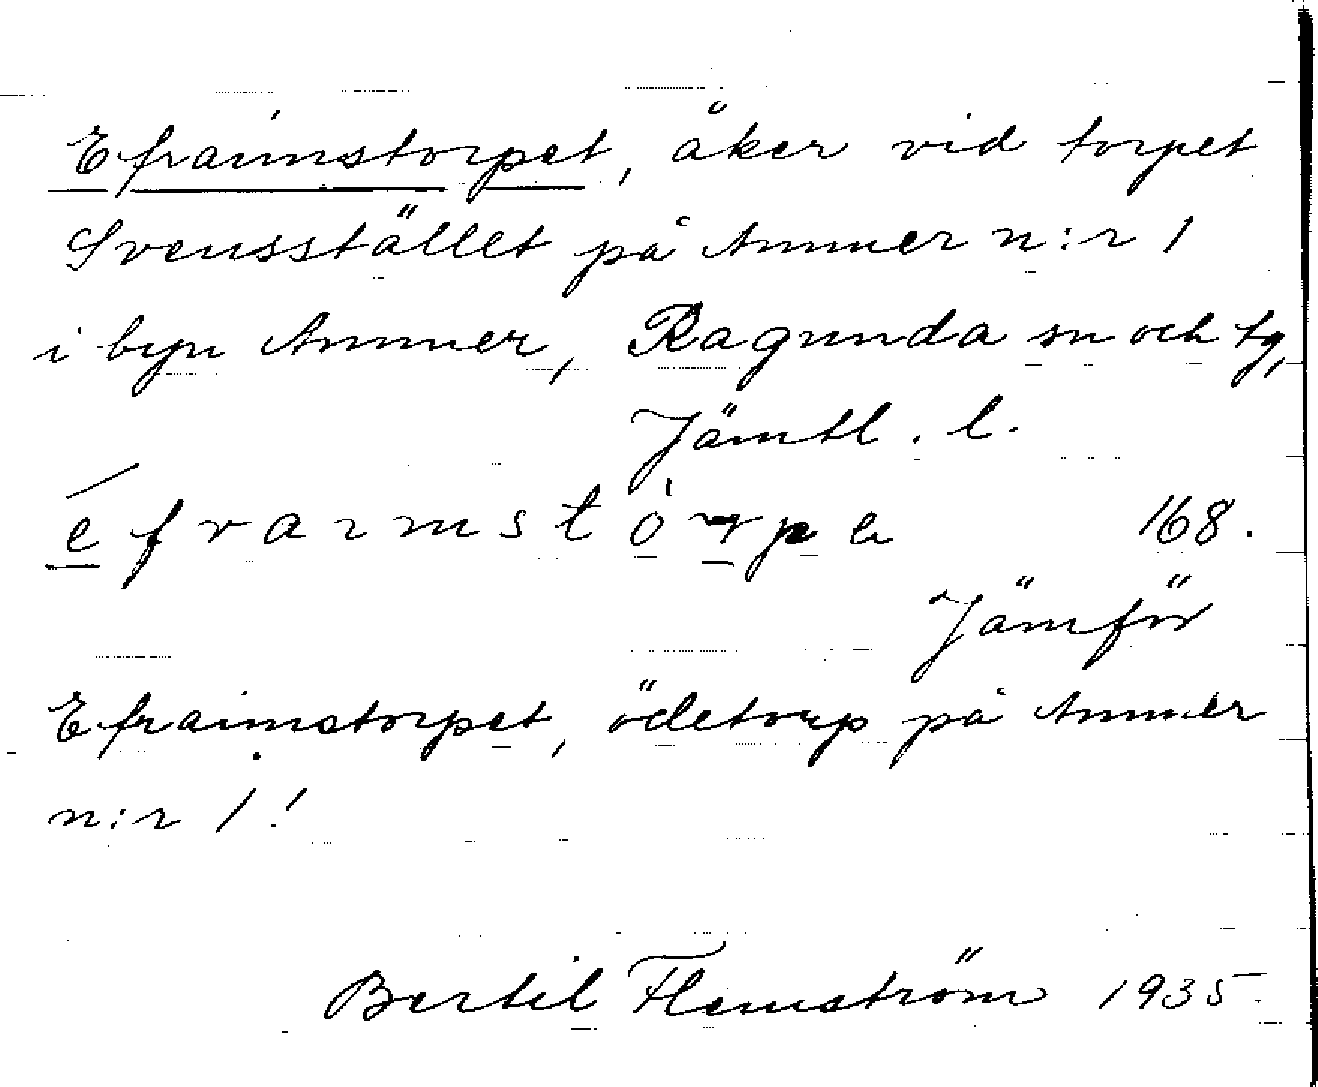 Efraimstorpet, åker vid torpet
Svensstället på Ammer n:r 1
i byn Ammer, Ragunda sn och tg,
Jämtl. l.
éfraımstòrpe 168.
Jämför
Efraimstorpet, ödetorp på Ammer
n:r 1!
Bertil Flemström 1935.